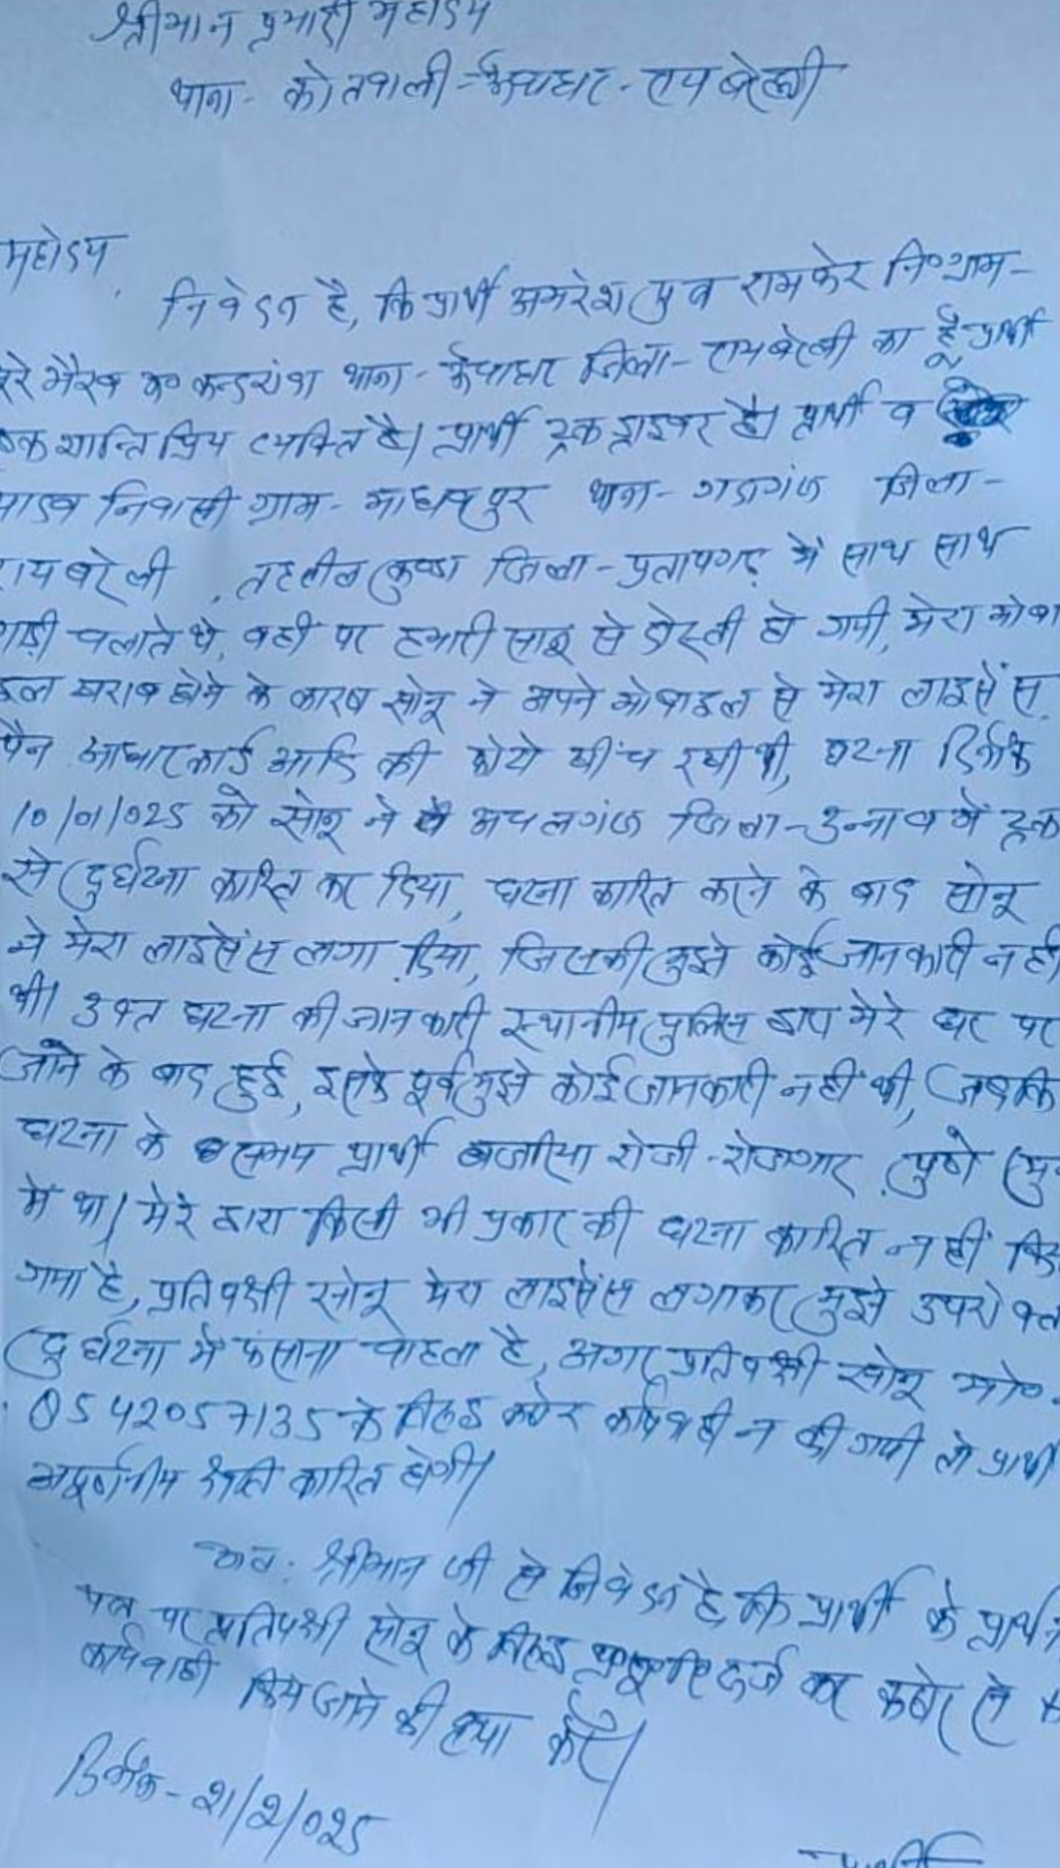 श्रीमान प्रभारी महोदय
थाना - कोतवाली - ऊँचाहार - रायबरेली
महोदय,
निवेदन है, कि प्रार्थी अमरेश पुत्र रामफेर नि० ग्राम -
पूरे भैरव म० कन्दरांवा थाना - ऊँचाहार जिला - रायबरेली का हूँ प्रार्थी
एक शान्ति प्रिय व्यक्ति है। प्रार्थी ट्रक ड्राइवर है। प्रार्थी व
यादव निवासी ग्राम - माधवपुर थाना - गदागंज जिला -
रायबरेली, तहसील कुण्डा जिला - प्रतापगढ़ में साथ साथ
गाड़ी चलाते थे, वही पर हमारी सोनू से दोस्ती हो गयी, मेरा मोबा
इल खराब होने के कारण सोनू ने अपने मोबाइल से मेरा लाइसेंस,
पैन आधार कार्ड आदि की फोटो खींच रखी थी, घटना दिनांक
10/01/025 को सोनू ने अचलगंज जिला - उन्नाव में ट्रक
से दुर्घटना कारित कर दिया, घटना कारित करने के बाद सोनू
ने मेरा लाइसेंस लगा दिया, जिसकी मुझे कोई जानकारी नहीं
थी। उक्त घटना की जानकारी स्थानीय पुलिस द्वारा मेरे घर पर
जाने के बाद हुई, इसके पूर्व मुझे कोई जानकारी नहीं थी, जबकि
घटना के समय प्रार्थी बजरिया रोजी - रोजगार पुणे
में था। मेरे द्वारा किसी भी प्रकार की घटना कारित नहीं किया
गया है, प्रतिपक्षी सोनू मेरा लाइसेंस लगाकर मुझे उपरोक्त
दुर्घटना में फंसाना चाहता है, अगर प्रतिपक्षी सोनू मो०
9542057135 के विरुद्ध कठोर कार्यवाही न की गयी तो प्रार्थी
अपूर्णनीय क्षति कारित होगी।
अतः श्रीमान जी से निवेदन है, कि प्रार्थी के प्रार्थना
पत्र पर प्रतिपक्षी सोनू के विरुद्ध दर्ज कर कठोर से
कार्यवाही किये जाने की कृपा करें।
दिनांक - 21/2/025
प्रार्थी